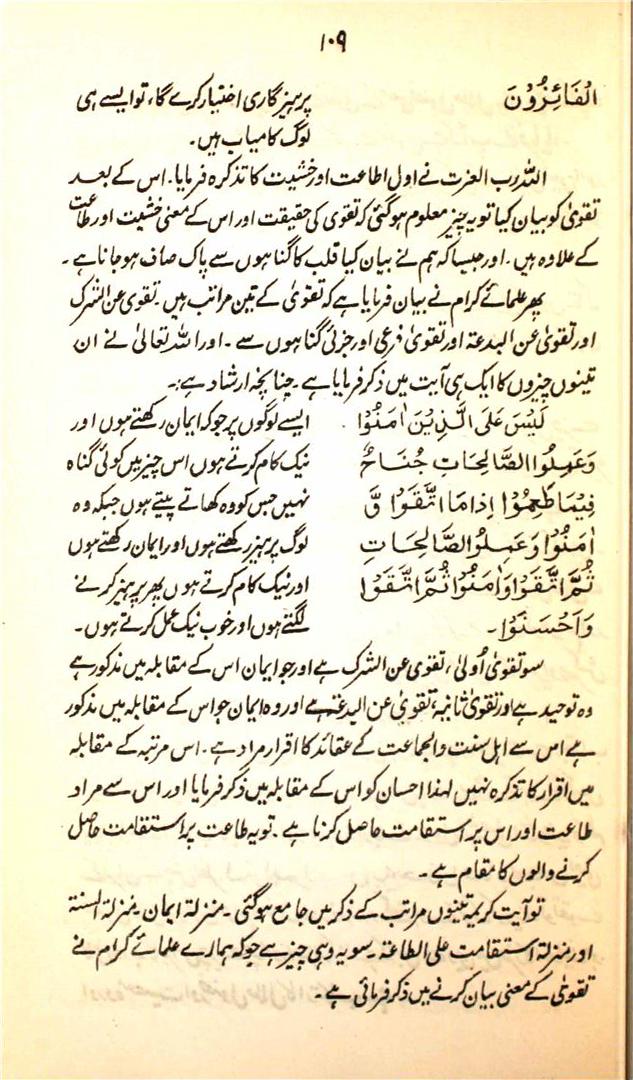 ۱۰۹
الْفَائِزُوْنَ
پرہیزگاری اختیار کرے گا، تو ایسے ہی
لوگ کامیاب ہیں۔
اللہ رب العزت نے اول اطاعت اور خشیت کا تذکرہ فرمایا۔ اس کے بعد
تقویٰ کو بیان کیا تو یہ چیز معلوم ہو گئی کہ تقوی کی حقیقت اور اس کے معنی خشیت اور طاعت
کے علاوہ ہیں۔ اور جیسا کہ ہم نے بیان کیا قلب کا گناہوں سے پاک صاف ہو جانا ہے۔
پھر علمائے کرام نے بیان فرمایا ہے کہ تقویٰ کے تین مراتب ہیں۔ تقوی عن الشرک
اور تقویٰ عن البدعۃ اور تقویٰ فرعی اور جزئی گناہوں سے۔ اور اللہ تعالیٰ نے ان
تینوں چیزوں کا ایک ہی آیت میں ذکر فرمایا ہے۔ چنانچہ ارشاد ہے:۔
لَیْسَ عَلَی الَّذِیْنَ اٰمَنُوْا
وَعَمِلُوا الصَّالِحَاتِ جُنَاحٌ
فِیْمَا طَعِمُوْا اِذَا مَا اتَّقَوْا وَّ
اٰمَنُوْا وَعَمِلُو الصَّالِحَاتِ
ثُمَّ اتَّقَوْا وَاٰمَنُوْا ثُمَّ اتَّقَوْا
وَاَحْسَنُوْا۔
ایسے لوگوں پر جو کہ ایمان رکھتے ہوں اور
نیک کام کرتے ہوں اس چیز میں کوئی گناہ
نہیں جس کو وہ کھاتے پیتے ہوں جبکہ وہ
لوگ پرہیز رکھتے ہوں اور ایمان رکھتے ہوں
اور نیک کام کرتے ہوں پھر پرہیز کرنے
لگتے ہوں اور خوب نیک عمل کرتے ہوں۔
سو تقویٰ اُولیٰ، تقوی عن الشرک ہے اور جو ایمان اس کے مقابلہ میں مذکور ہے
وہ توحید ہے اور تقویٰ ثانیہ، تقویٰ عن البدعۃ ہے اور وہ ایمان جو اس کے مقابلہ میں مذکور
ہے اس سے اہل سنت والجماعت کے عقائد کا اقرار مراد ہے۔ اس مرتبہ کے مقابلہ
میں اقرار کا تذکرہ نہیں لہٰذا احسان کو اس کے مقابلہ میں ذکر فرمایا اور اس سے مراد
طاعت اور اس پر استقامت حاصل کرنا ہے۔ تو یہ طاعت پر استقامت حاصل
کرنے والوں کا مقام ہے۔
تو آیت کریمہ تینوں مراتب کے ذکر میں جامع ہو گئی۔ منزلۃ ایمان۔ منزلۃ السنۃ
اور منزلۃ استقامت علی الطاعۃ۔ سو یہ وہی چیز ہے جو کہ ہمارے علمائے کرام نے
تقویٰ کے معنی بیان کرنے میں ذکر فرمائی ہے۔